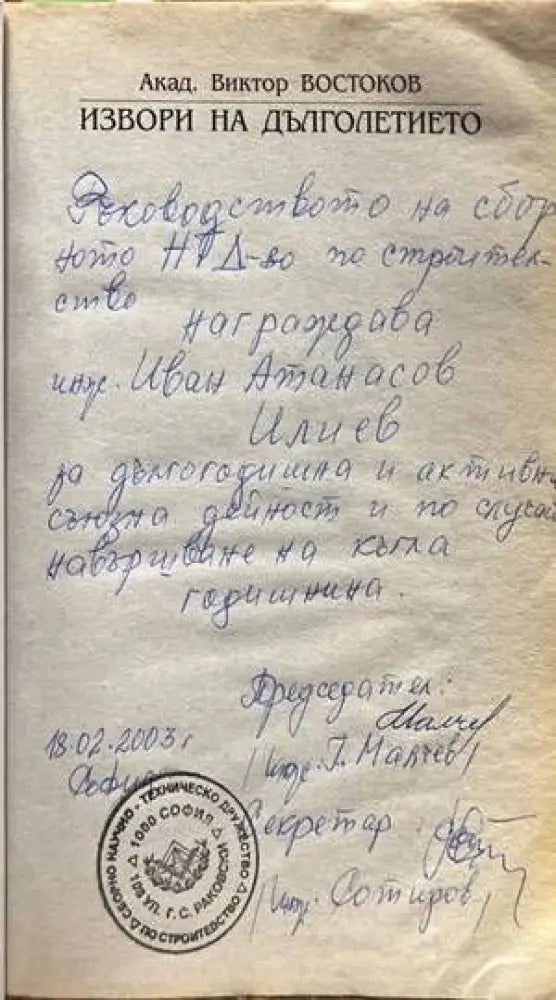 Акад. Виктор ВОСТОКОВ
ИЗВОРИ НА ДЪЛГОЛЕТИЕТО
Ръководството на сбор
ното НТД-во по строител-
ство
награждава
инж. Иван Атанасов
Илиев
за дългогодишна и активн
съюзна дейност и по случай
навършване на кръгла
годишнина.
Председател:
18.02.2003 г
/инж. Г. Малчев/
София
Секретар:
/инж. Сотиров/
СБОРНО НАУЧНО - ТЕХНИЧЕСКО ДРУЖЕСТВО
ПО СТРОИТЕЛСТВО
1000 СОФИЯ
108 УЛ. Г.С. РАКОВСКИ